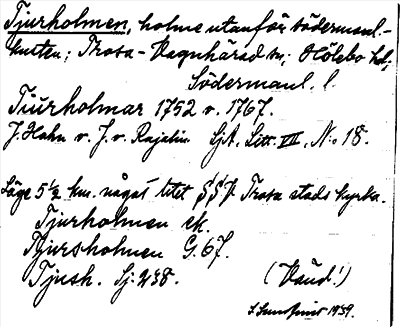 Tjurholmen, holme utanför södermanl.-
kusten; Trosa-Vagnhärad sn; Hölebo hd,
Södermanl. l.
Tiurholmar 1752 v. 1767.
J. Hahn v. J. v. Rajalin SjA. Litt. VII, No 18.
Läge 5½ km. något litet S.S.V. Trosa stads kyrka.
Tjurholmen ek.
Tjursholmen G. 67.
Tjush. Sj. 238.
(Vänd!)
1939.